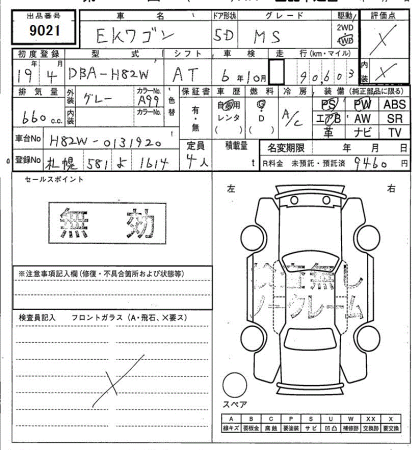 出品番号 車名 ドア形状 グレード 駆動 評価点
9021 EKワゴン 5D MS 2WD 4WD X
初度登録 型式 シフト 車検 走行(km・マイル) 内装
19年4月 DBA-H82W AT 6年10月 90603 X
排気量 外装 カラーNo. 色替 保証書 車歴 燃料 冷房 装備(純正部品に限る)
660c.c. グレー A99 有・無 自家用 レンタ ( ) G D ( ) A/C PS PW ABS
内装 カラーNo. エアB AW SR
車台No H82W-0131920 革 ナビ TV
登録No 札幌 581 よ 1614 定員 4人 積載量 t 名変期限 年 月 日
R料金 未預託・預託済 9460円
セールスポイント 左 右
無効
※注意事項記入欄(修復・不具合箇所および状態等)
検査員記入 フロントガラス(A・飛石、X要ス)
ノークレーム
スペア
A B C P S U W X XX
線キズ 要板金 腐蝕 要塗装 サビ 凹凸 補修跡 要交換 交換済